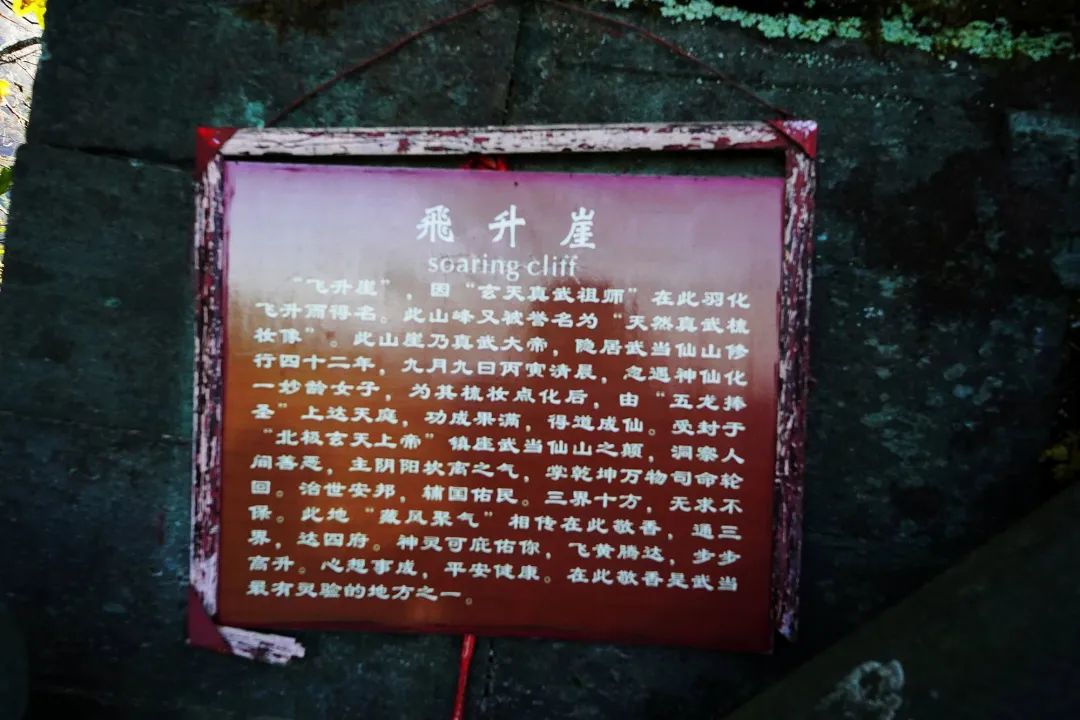 飛升崖
soaring cliff
“飞升崖”，因“玄天真武祖师”在此羽化
飞升而得名。此山峰又被誉名为“天然真武梳
妆像”。此山崖乃真武大帝，隐居武当仙山修
行四十二年，九月九日丙寅清晨，忽遇神仙化
一妙龄女子，为其梳妆点化后，由“五龙捧
圣”上达天庭，功成果满，得道成仙。受封于
“北极玄天上帝”镇座武当仙山之颠，洞察人
间善恶，主阴阳坎离之气，掌乾坤万物司命轮
回。治世安邦，辅国佑民。三界十方，无求不
保。此地“藏风聚气”相传在此敬香，通三
界，达四府。神灵可庇佑你，飞黄腾达，步步
高升。心想事成，平安健康。在此敬香是武当
最有灵验的地方之一。